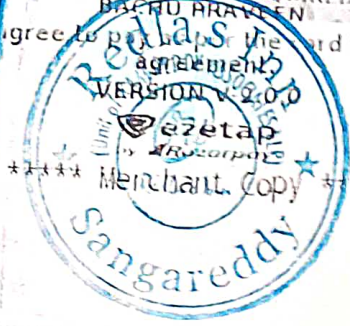 BACHU PRAVEEN
agree to pay as per the card
agreement
VERSION V.2.0.0
ezetap
by Razorpay
***** Merchant Copy **
Sangareddy